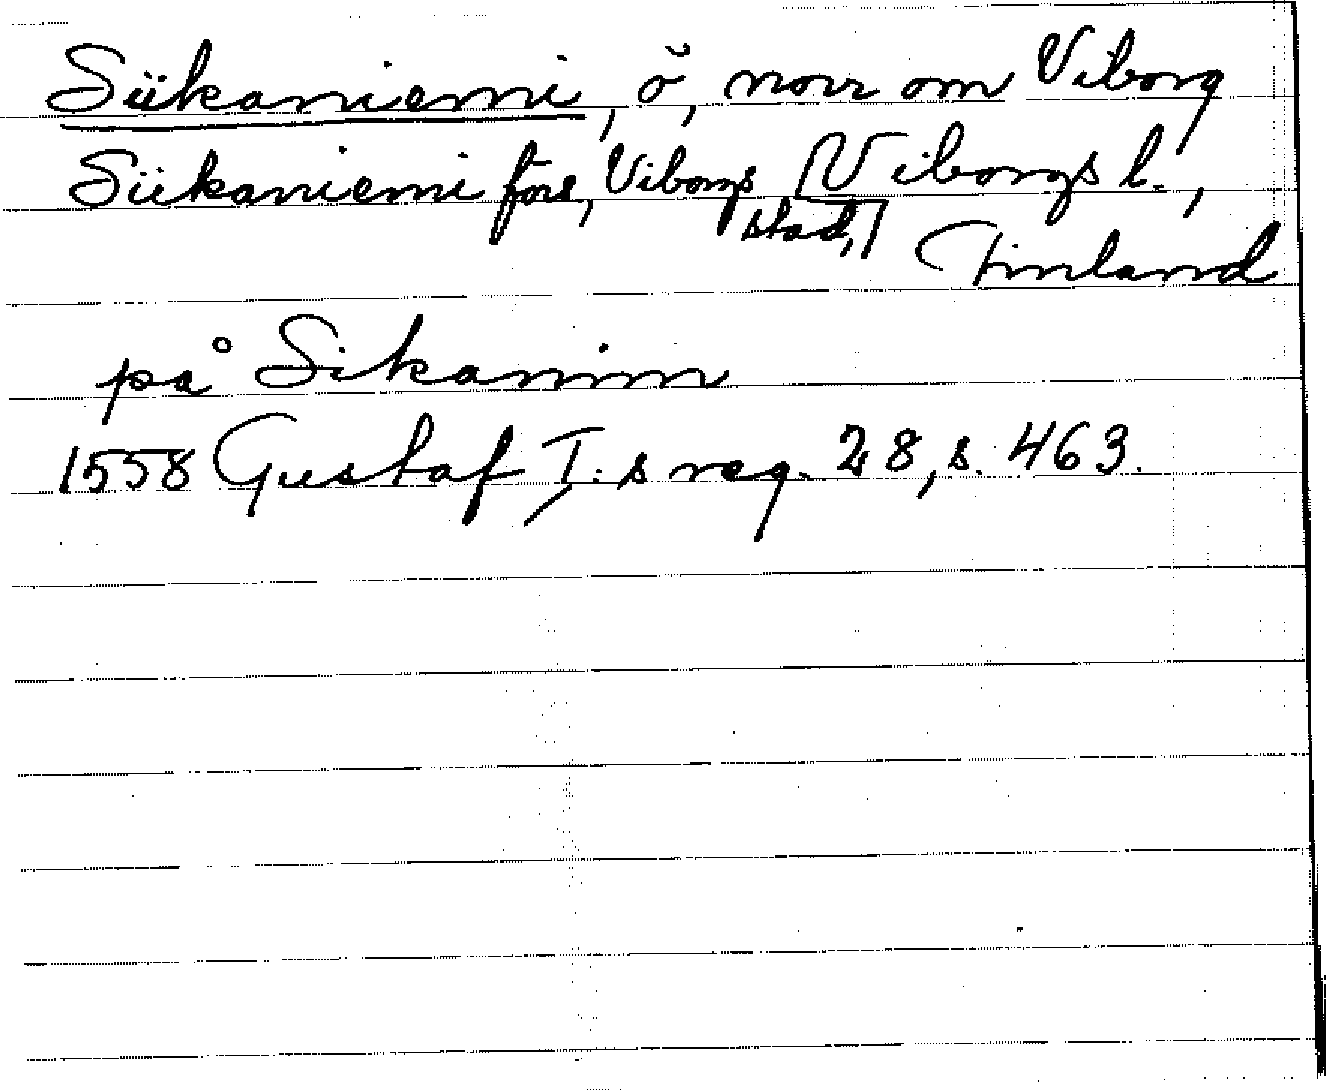 Siikaniemi, ö, norr om Viborg
Siikaniemi förs, Viborgs stad, Viborgs l.,
Finland
på Sikanim
1558 Gustaf I:s reg. 28, s. 463.